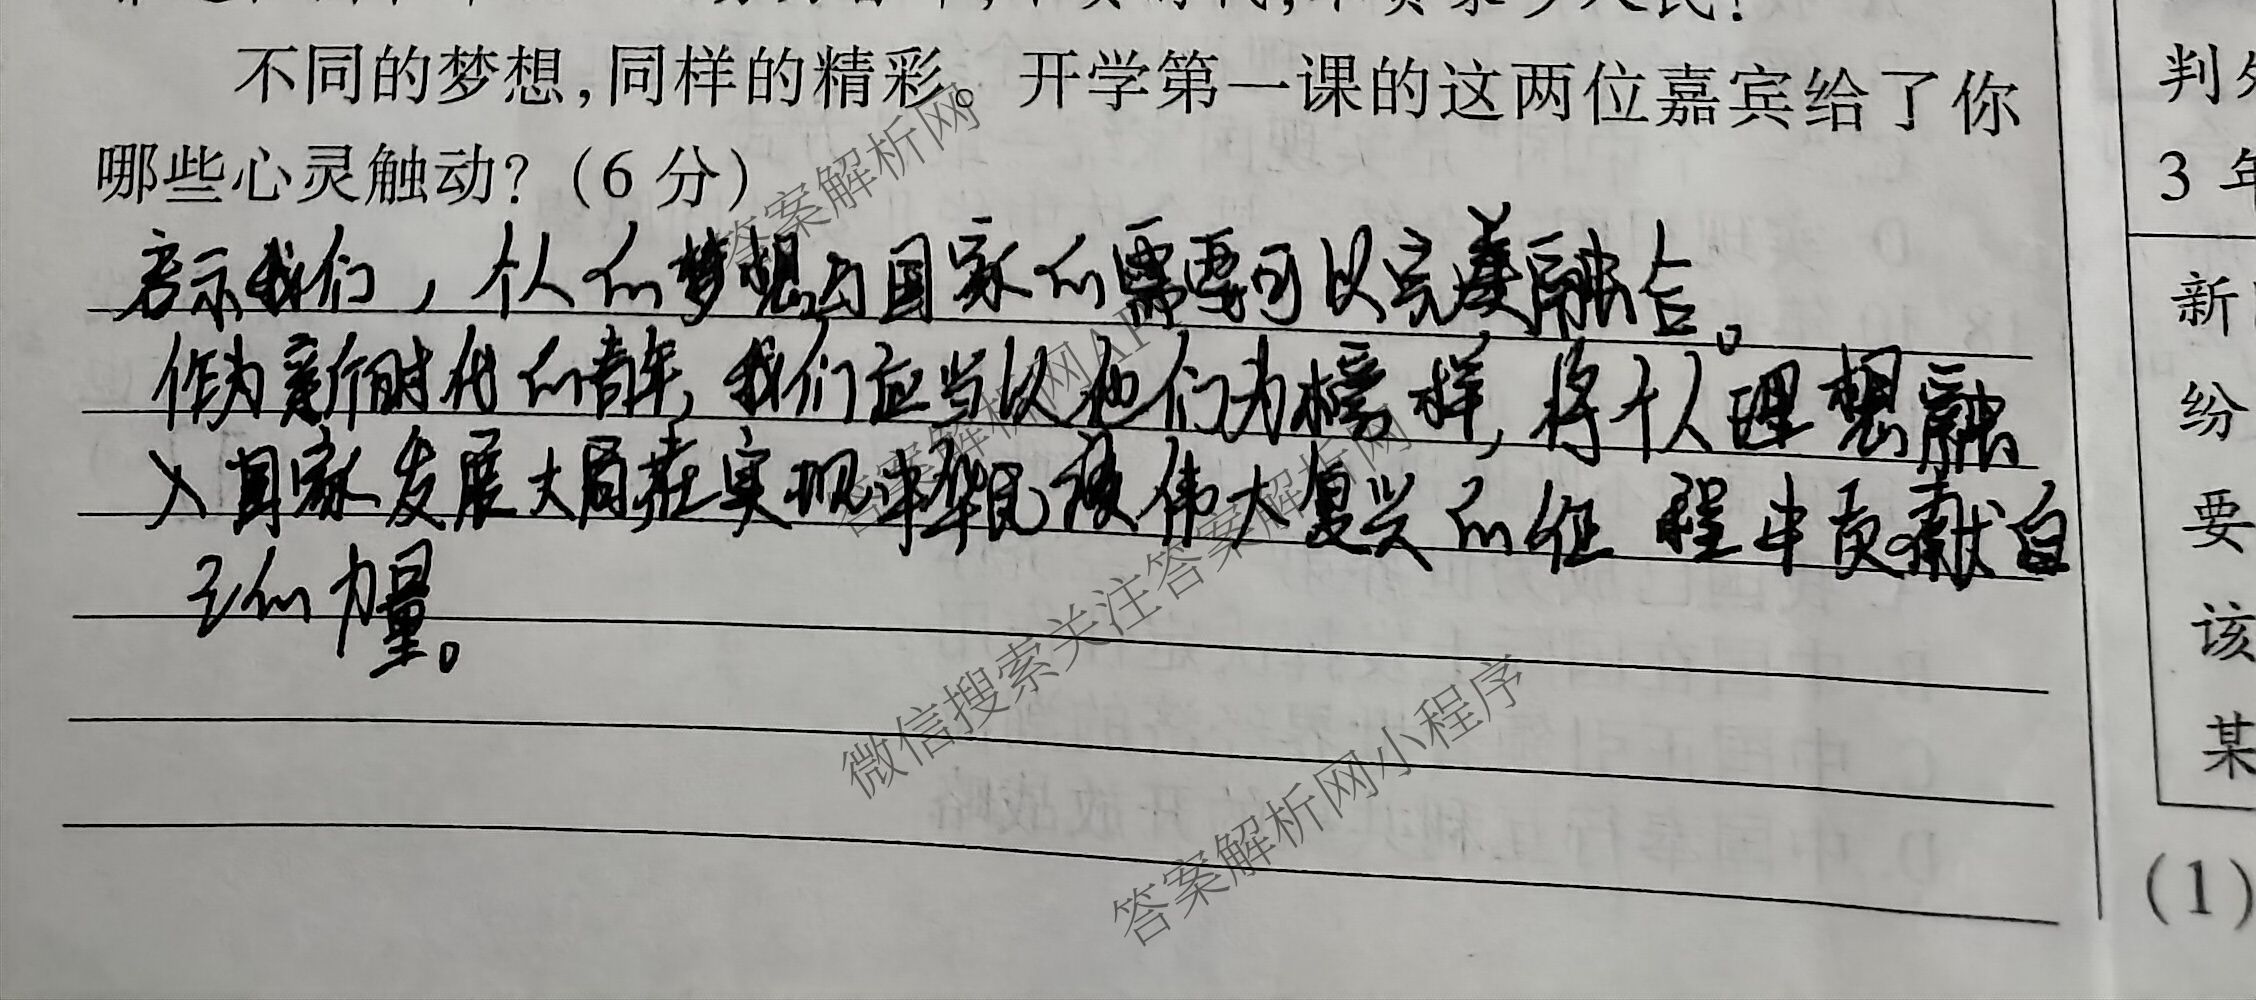 不同的梦想,同样的精彩。开学第一课的这两位嘉宾给了你
哪些心灵触动?(6分)
启示我们，个人的梦想与国家的需要可以完美融合。
作为新时代的青年,我们应当以他们为榜样,将个人理想融
入国家发展大局在实现中华民族伟大复兴的征程中贡献自
己的力量。
答案解析网
答案解析网API
微信搜索关注答案解析网
答案解析网小程序
判
3年
新
纷
要
该
某
(1)